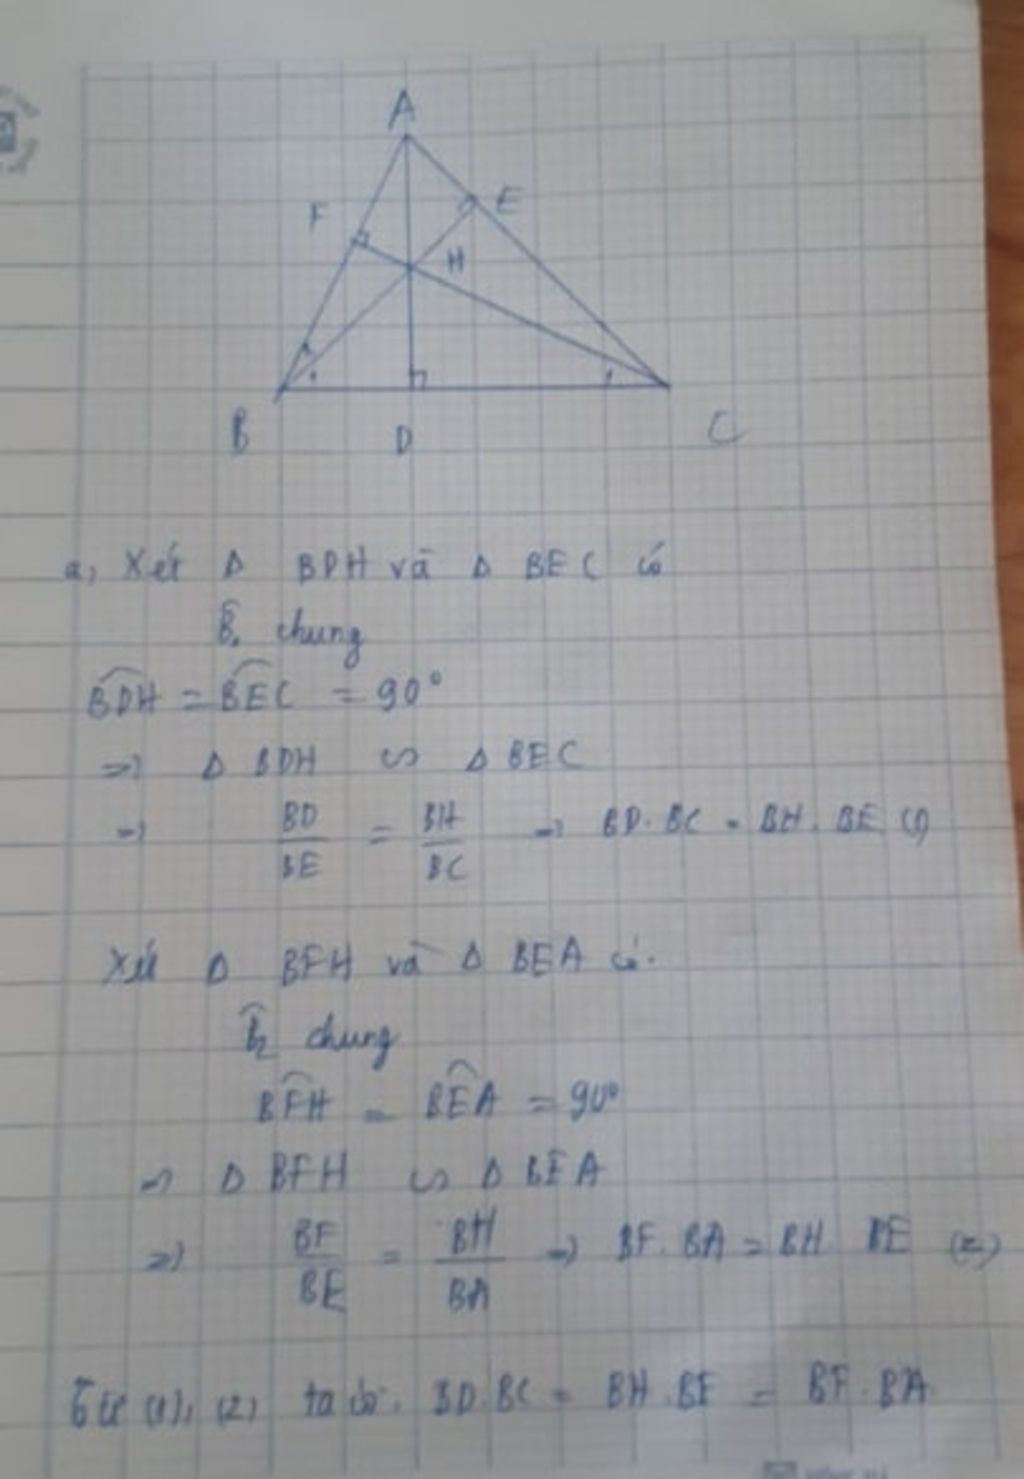 A
F
E
H
B
D
C
a, Xét Δ BDH và Δ BEC có
B̂₁ chung
BDH = BEC = 90°
=> Δ BDH ∽ Δ BEC
=> BD/BE = BH/BC => BD.BC = BH.BE (1)
Xét Δ BFH và Δ BEA có.
B̂₂ chung
BFH = BEA = 90°
=> Δ BFH ∽ Δ BEA
=> BF/BE = BH/BA => BF.BA = BH BE (2)
Từ (1), (2) ta có. BD.BC = BH.BE = BF.BA